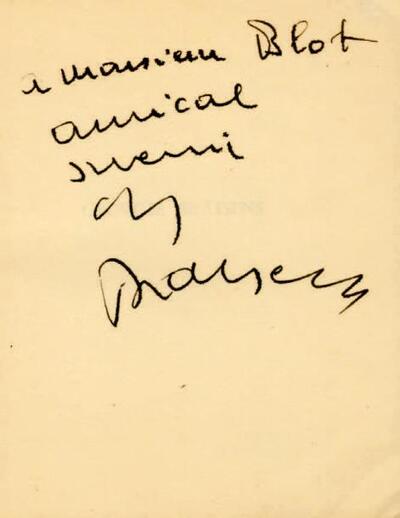 a monsieur Blot
amical
souvenir
G
Brassens